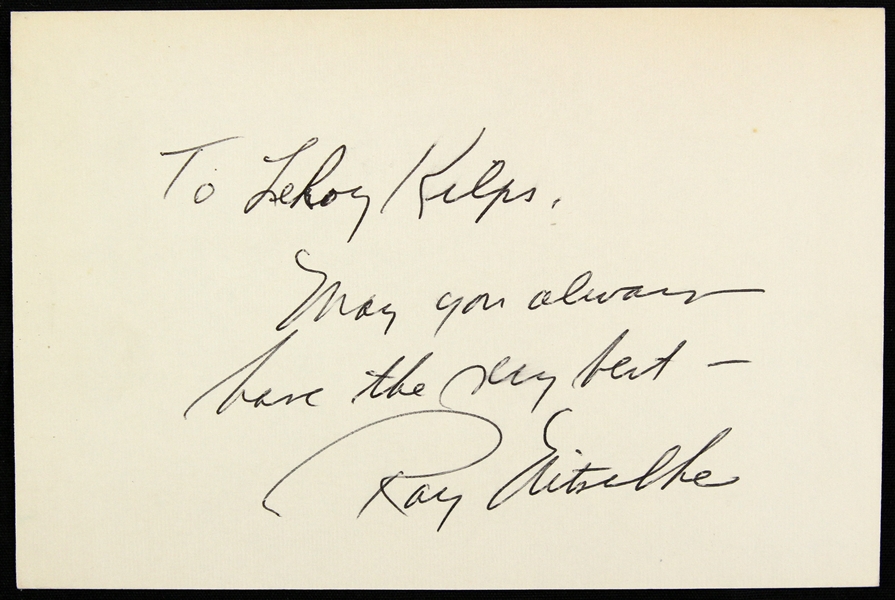 To LeRoy Kelps.
May you always
have the very best —
Ray Nitschke